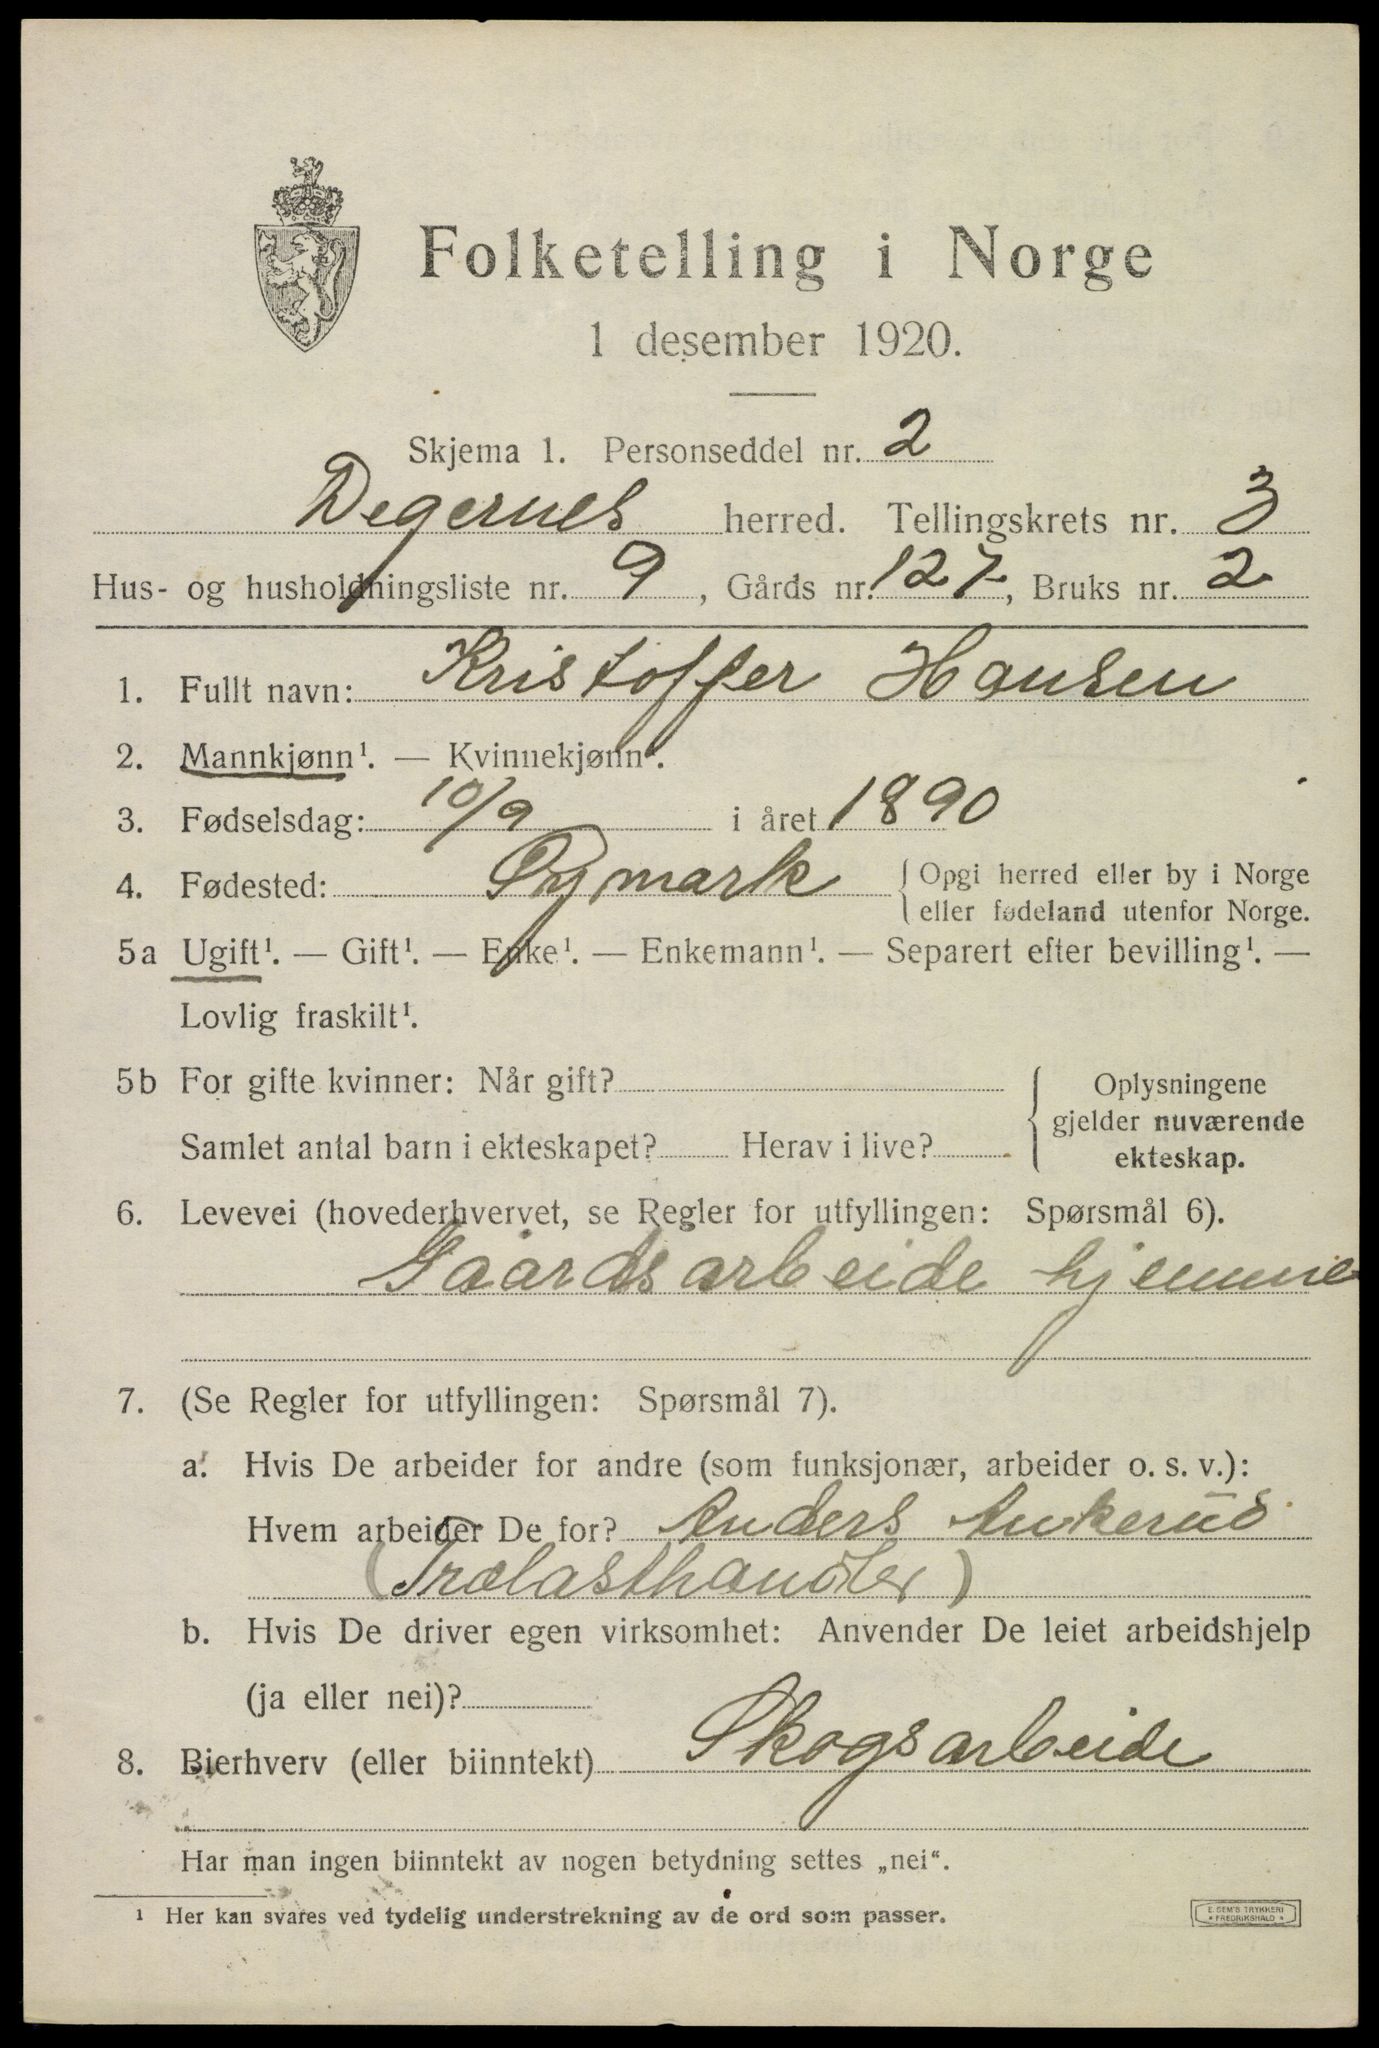 Folketelling i Norge
1 desember 1920.
Skjema 1. Personseddel nr. 2
Degernes herred. Tellingskrets nr. 3
Hus- og husholdningsliste nr. 9, Gårds nr. 127, Bruks nr. 2
1. Fullt navn: Kristoffer Hansen
2. Mannkjønn¹. — Kvinnekjønn¹.
3. Fødselsdag: 10/9 i året 1890
4. Fødested: Øymark { Opgi herred eller by i Norge
eller fødeland utenfor Norge.
5a Ugift¹. — Gift¹. — Enke¹. — Enkemann¹. — Separert efter bevilling¹. —
Lovlig fraskilt¹.
5b For gifte kvinner: Når gift? { Oplysningene
gjelder nuværende
Samlet antal barn i ekteskapet? Herav i live? ekteskap.
6. Levevei (hovederhvervet, se Regler for utfyllingen: Spørsmål 6).
Gaardsarbeide hjemme
7. (Se Regler for utfyllingen: Spørsmål 7).
a. Hvis De arbeider for andre (som funksjonær, arbeider o. s. v.):
Hvem arbeider De for? Anders Ankerud
(Trælasthandler)
b. Hvis De driver egen virksomhet: Anvender De leiet arbeidshjelp
(ja eller nei)?
8. Bierhverv (eller biinntekt) Skogsarbeide
Har man ingen biinntekt av nogen betydning settes „nei“.
¹ Her kan svares ved tydelig understrekning av de ord som passer.
E. SEM'S TRYKKERI
* FREDRIKSHALD *